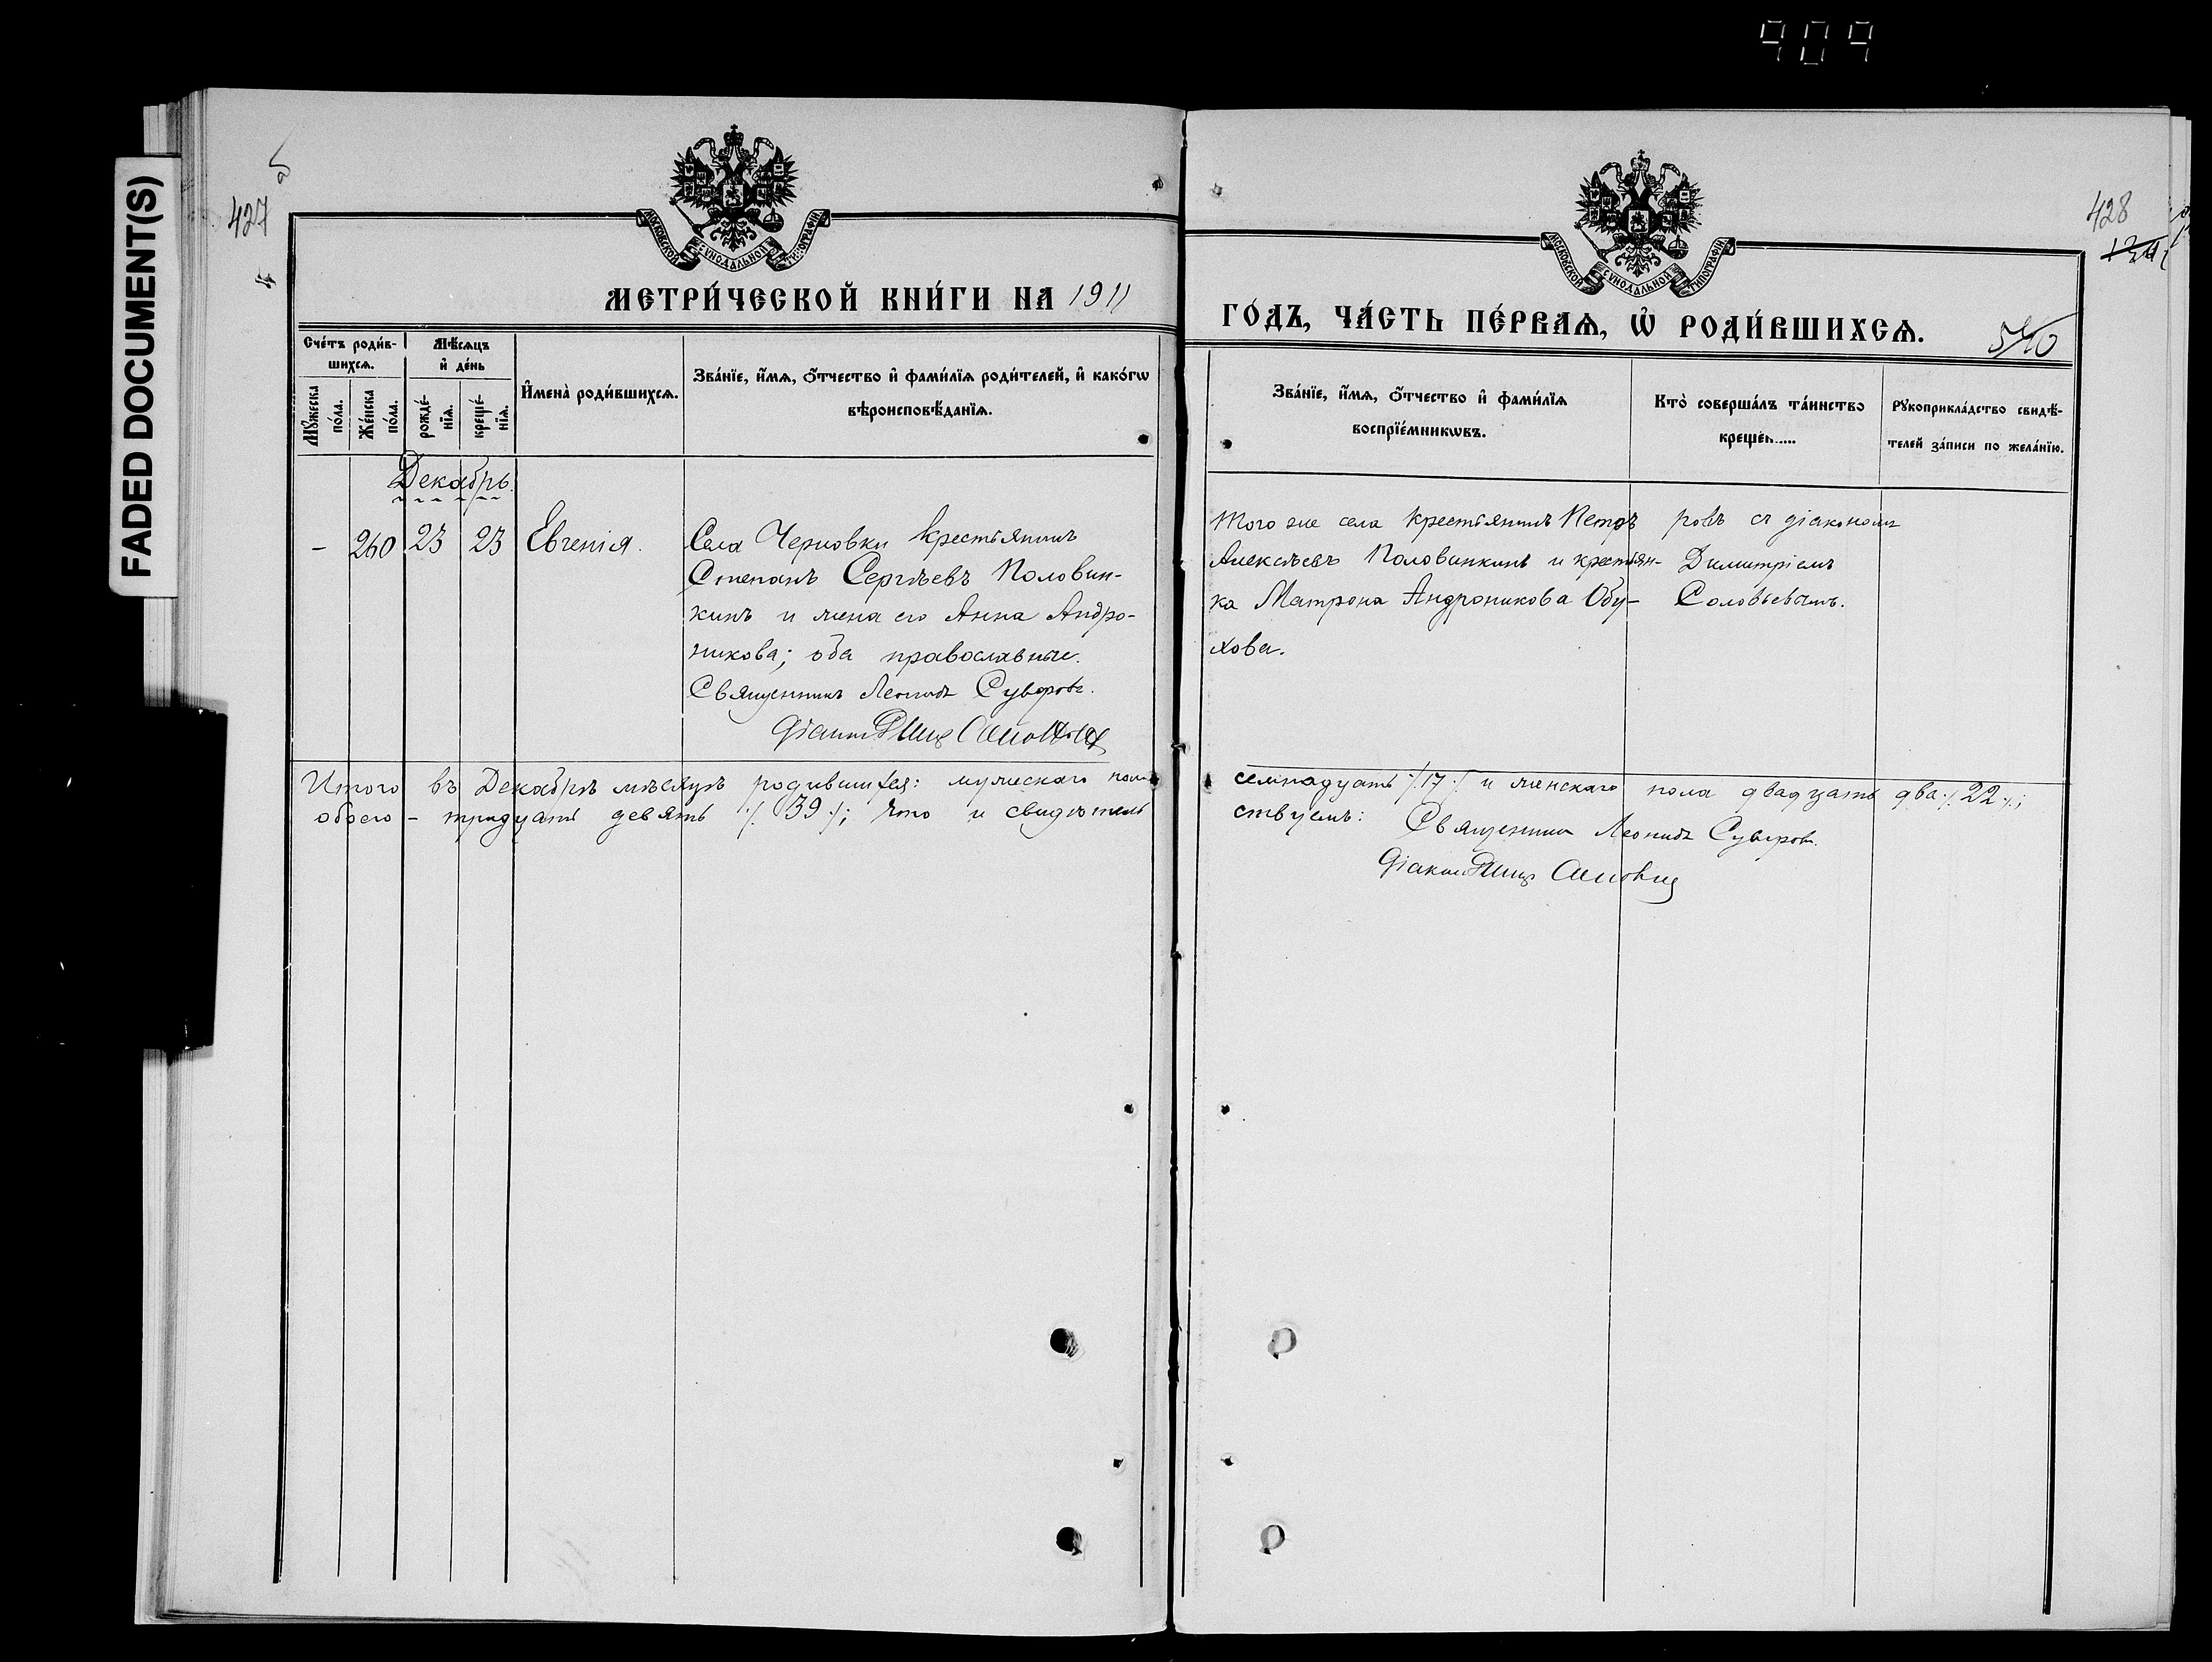 909
FADED DOCUMENT(S)
427
428
540
МОСКОВСКОЙ СѴНОДАЛЬНОЙ ТИПОГРАФІИ
МОСКОВСКОЙ СѴНОДАЛЬНОЙ ТИПОГРАФІИ
МЕТРИ́ЧЕСКОЙ КНИ́ГИ НА 1911
ГО́ДЪ, ЧА́СТЬ ПЕ́РВАѦ, Ѡ҆ РОДИ́ВШИХСѦ.
Сче́тъ роди́в-
шихсѧ.
Мꙋ́жеска
по́ла.
Же́нска
по́ла.
Мѣ́сѧцъ
и҆ де́нь
рожде́-
нїѧ.
креще́-
нїѧ.
И҆мена̀ роди́вшихсѧ.
Зва́нїе, и҆́мѧ, ѻ҆́тчество и҆ фами́лїѧ роди́телей, и҆ како́гѡ
вѣроисповѣ́данїѧ.
Зва́нїе, и҆́мѧ, ѻ҆́тчество и҆ фами́лїѧ
воспрїе́мникѡвъ.
Кто̀ соверша́лъ та́инство
креще́н.....
Рꙋкоприкла́дство свидѣ́-
телей за́писи по жела́нїю.
Декабрь.
- 260 23 23 Евгенія.
Села Черновки крестьянинъ
Степанъ Сергѣевъ Половин-
кинъ и жена его Анна Андро-
никова; оба православные.
Священникъ Леонидъ Суворовъ.
Того же села крестьянинъ Петръ
Алексѣевъ Половинкинъ и крестьян-
ка Матрона Андроникова Обу-
хова.
ровъ съ діакономъ
Димитріемъ
Соловьевымъ.
Итого въ Декабрѣ мѣсяцѣ родившихся: мужескаго пола семнадцать ./. 17 ./. и женскаго пола двадцать два ./. 22 ./.;
обоего - тридцать девять ./. 39 ./.; что и свидѣтель ствуемъ: Священникъ Леонидъ Суворовъ.